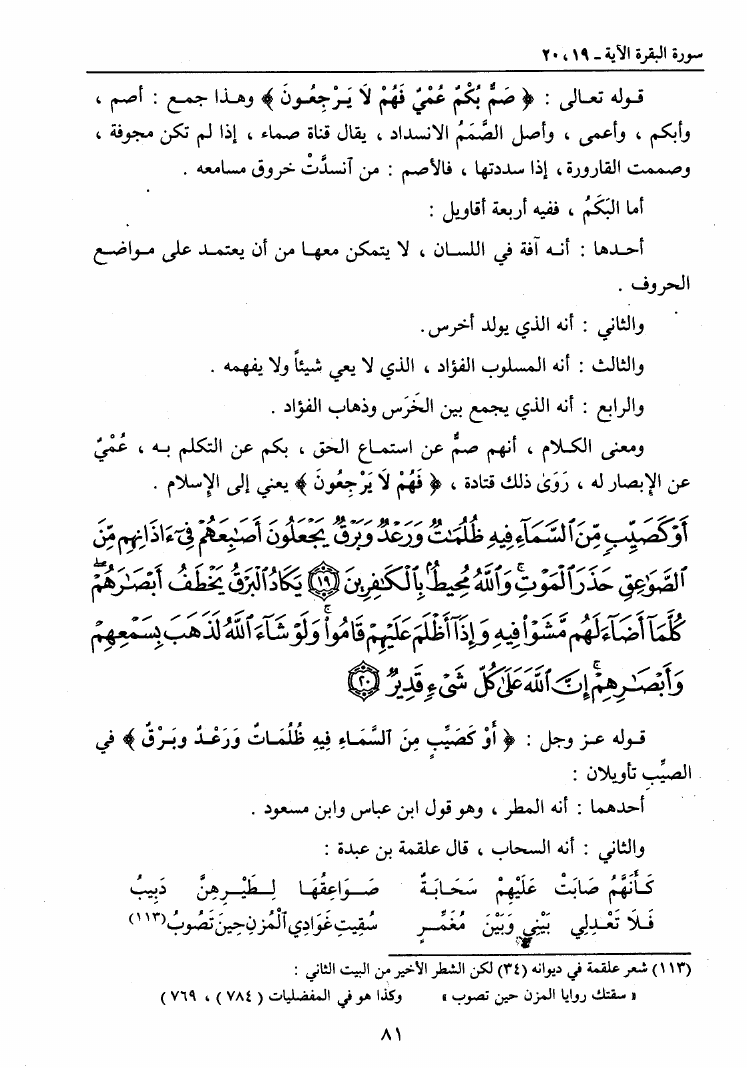 سورة البقرة الآية ـ ١٩، ٢٠
قوله تعالى : ﴿ صُمٌّ بُكْمٌ عُمْيٌ فَهُمْ لَا يَرْجِعُونَ ﴾ وهذا جمع : أصم ،
وأبكم ، وأعمى ، وأصل الصَّمَمُ الانسداد ، يقال قناة صماء ، إذا لم تكن مجوفة ،
وصممت القارورة، إذا سددتها ، فالأصم : من آنسدَّتْ خروق مسامعه .
أما البَكَمُ ، ففيه أربعة أقاويل :
أحدها : أنه آفة في اللسان ، لا يتمكن معها من أن يعتمد على مواضع
الحروف .
والثاني : أنه الذي يولد أخرس.
والثالث : أنه المسلوب الفؤاد ، الذي لا يعي شيئاً ولا يفهمه .
والرابع : أنه الذي يجمع بين الخَرَس وذهاب الفؤاد .
ومعنى الكلام ، أنهم صمٌّ عن استماع الحق ، بكم عن التكلم به ، عُمْيٌ
عن الإبصار له ، رَوَىٰ ذلك قتادة ، ﴿ فَهُمْ لَا يَرْجِعُونَ ﴾ يعني إلى الإسلام .
أَوْ كَصَيِّبٍ مِّنَ ٱلسَّمَآءِ فِيهِ ظُلُمَٰتٌ وَرَعْدٌ وَبَرْقٌ يَجْعَلُونَ أَصَٰبِعَهُمْ فِىٓ ءَاذَانِهِم مِّنَ
ٱلصَّوَٰعِقِ حَذَرَ ٱلْمَوْتِ ۚ وَٱللَّهُ مُحِيطٌۢ بِٱلْكَٰفِرِينَ ﴿١٩﴾ يَكَادُ ٱلْبَرْقُ يَخْطَفُ أَبْصَٰرَهُمْ ۖ
كُلَّمَآ أَضَآءَ لَهُم مَّشَوْا۟ فِيهِ وَإِذَآ أَظْلَمَ عَلَيْهِمْ قَامُوا۟ ۚ وَلَوْ شَآءَ ٱللَّهُ لَذَهَبَ بِسَمْعِهِمْ
وَأَبْصَٰرِهِمْ ۚ إِنَّ ٱللَّهَ عَلَىٰ كُلِّ شَىْءٍ قَدِيرٌ ﴿٢٠﴾
قوله عز وجل : ﴿ أَوْ كَصَيِّبٍ مِنَ السَّمَاءِ فِيهِ ظُلُمَاتٌ وَرَعْدٌ وبَرْقٌ ﴾ في
الصيِّب تأويلان :
أحدهما : أنه المطر ، وهو قول ابن عباس وابن مسعود .
والثاني : أنه السحاب ، قال علقمة بن عبدة :
كَأَنَّهُمُ صَابَتْ عَلَيْهِمْ سَحَابَةٌ صَوَاعِقُهَا لِطَيْرِهِنَّ دَبِيبُ
فَلَا تَعْدِلِي بَيْنِي وَبَيْنَ مُغَمِّرٍ سُقِيتِ غَوَادِي ٱلْمُزنِ حِينَ تَصُوبُ(١١٣)
(١١٣) شعر علقمة في ديوانه (٣٤) لكن الشطر الأخير من البيت الثاني :
« سقتك روايا المزن حين تصوب » وكذا هو في المفضليات ( ٧٨٤ ) ، ٧٦٩ )
٨١